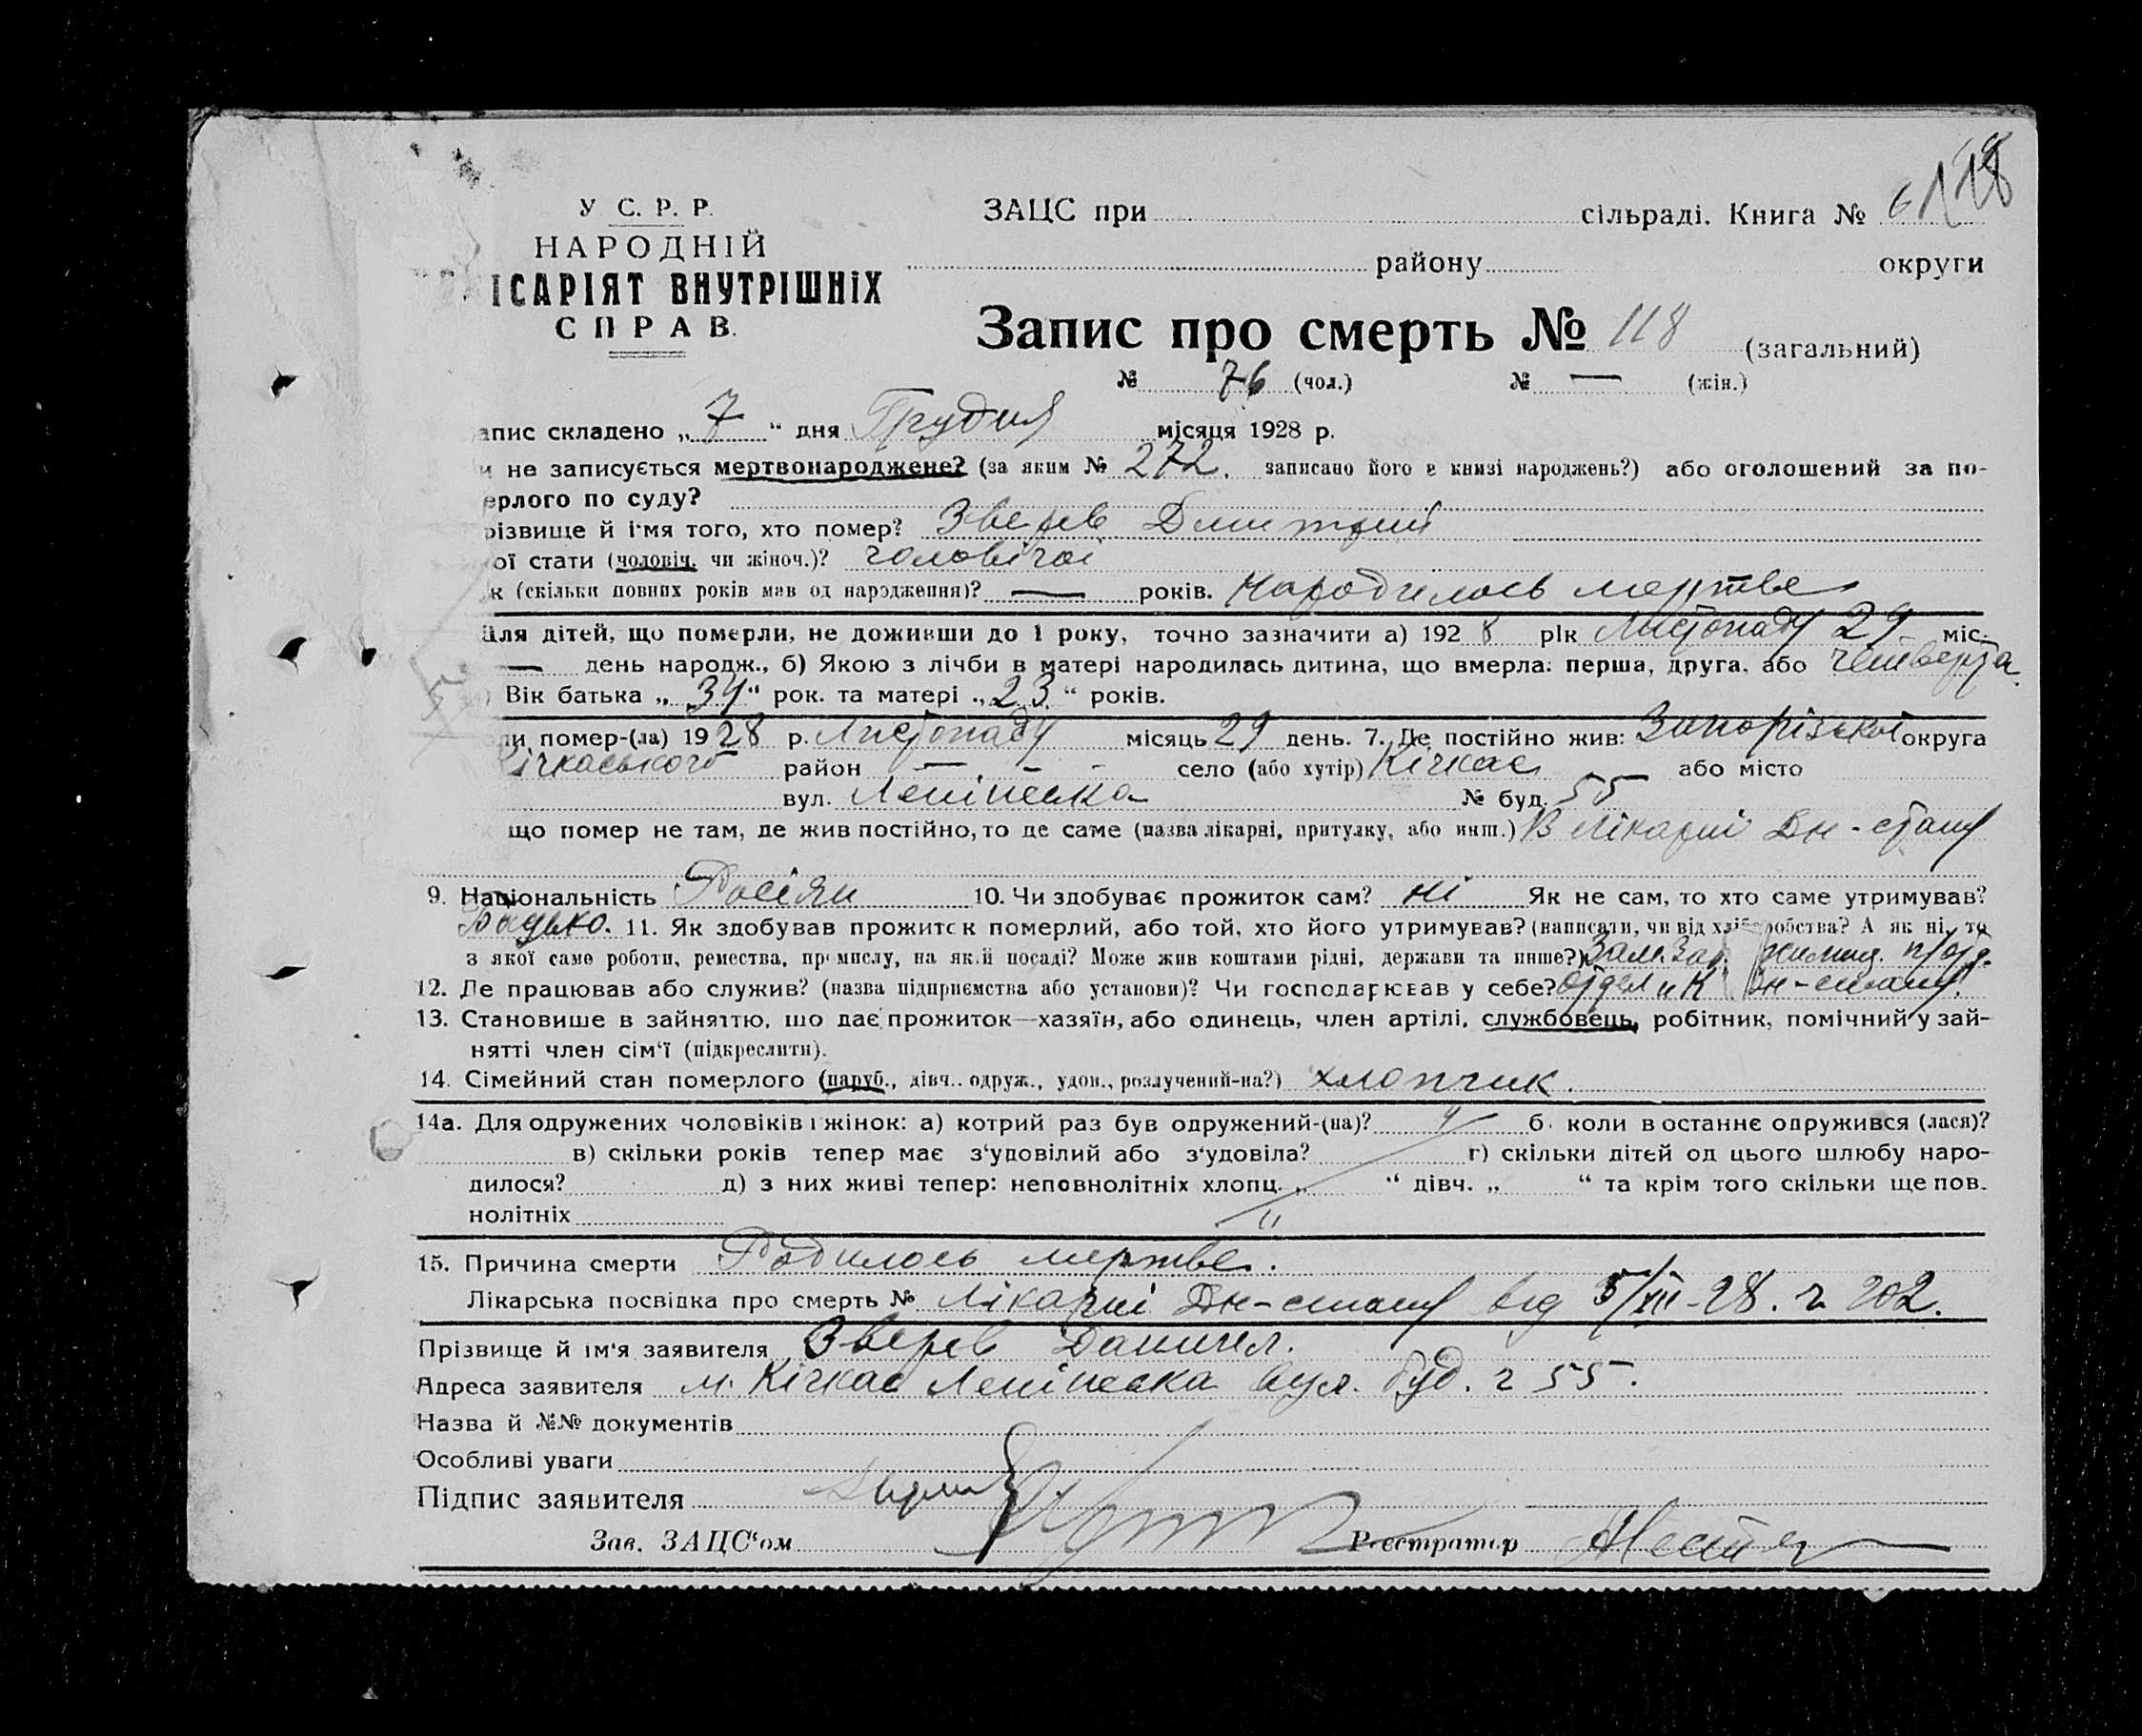 У С. Р. Р.
НАРОДНІЙ
ІСАРІЯТ ВНУТРІШНІХ
СПРАВ.
ЗАЦС при сільраді. Книга №
району округи
Запис про смерть № 118 (загальний)
№ 76 (чол.) № — (жін.)
апис складено „ 7 “ дня Грудня місяця 1928 р.
и не записується мертвонароджене? (за яким № 272. записано його в книзі народжень?) або оголошений за по-
ерлого по суду?
різвище й ім'я того, хто помер? Зверев Дмитрий
ої стати (чоловіч. чи жіноч.)? чоловічої
к (скільки повних років мав од народження)? — років. Народилось мертве
Для дітей, що померли, не доживши до 1 року, точно зазначити а) 1928 рік Листопаду 29 міс.
— день народж., б) Якою з лічби в матері народилась дитина, що вмерла: перша, друга, або четверта.
) Вік батька „ 34 “ рок. та матері „ 23 “ років.
оли помер-(ла) 1928 р. Листопаду місяць 29 день. 7. Де постійно жив: Запорізької округа
ічкаського район — село (або хутір) Кічкас або місто
вул. Ленінська № буд. 55
що помер не там, де жив постійно, то де саме (назва лікарні, притулку, або инш.) В лікарні Дн-стану
9. Національність Росіян 10. Чи здобуває прожиток сам? ні Як не сам, то хто саме утримував?
Батько. 11. Як здобував прожиток померлий, або той, хто його утримував? (написати, чи від хліборобства? А як ні, то
з якої саме роботи, ремества, промислу, на якій посаді? Може жив коштами рідні, держави та инше?) Зам. Зав.
12. Де працював або служив? (назва підприємства або установи)? Чи господарював у себе? Дн-стану.
13. Становище в зайняттю, що дає прожиток—хазяїн, або одинець, член артілі, службовець, робітник, помічний у зай-
нятті член сім'ї (підкреслити).
14. Сімейний стан померлого (паруб., дівч., одруж., удов., розлучений-на?) хлопчик.
14а. Для одружених чоловіків і жінок: а) котрий раз був одружений-(на)? б. коли востаннє одружився (лася)?
в) скільки років тепер має з'удовілий або з'удовіла? г) скільки дітей од цього шлюбу наро-
дилося? д) з них живі тепер: неповнолітніх хлопц. „ “ дівч. „ “ та крім того скільки ще пов.
нолітніх
15. Причина смерти Родилось мертве.
Лікарська посвідка про смерть № Лікарні Дн-стану від 5/XII-28. ч. 202.
Прізвище й ім'я заявителя Зверев Даниил.
Адреса заявителя м. Кічкас Ленінська вул. буд. ч 55.
Назва й №№ документів
Особливі уваги
Підпис заявителя
Зав. ЗАЦС'ом Реєстратор